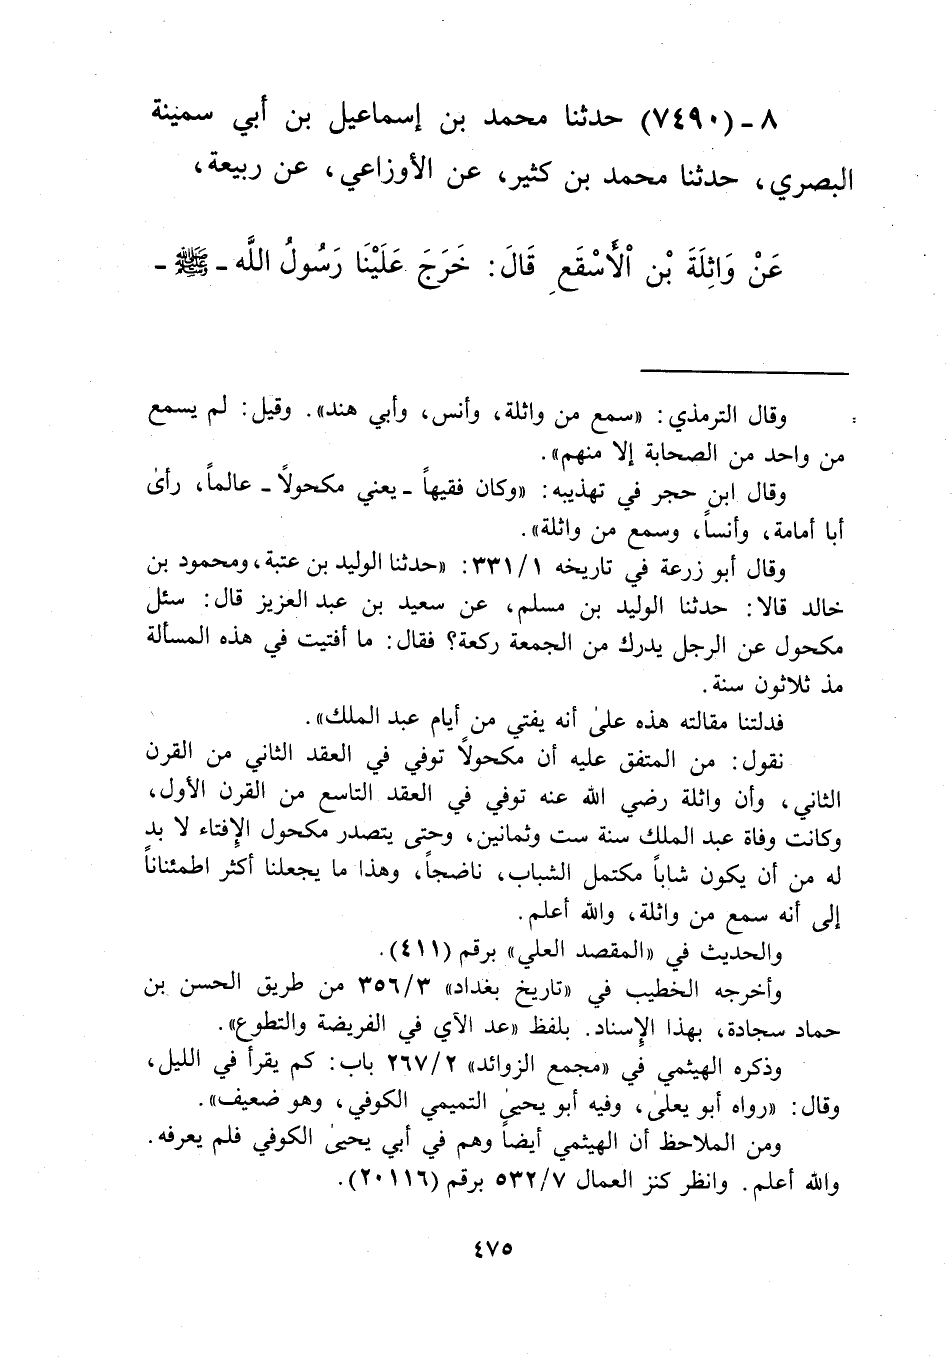 ٨ - (٧٤٩٠) حدثنا محمد بن إسماعيل بن أبي سمينة
البصري، حدثنا محمد بن كثير، عن الأوزاعي، عن ربيعة،
عَنْ وَاثِلَةَ بْنِ الْأَسْقَعِ قَالَ: خَرَجَ عَلَيْنَا رَسُولُ اللَّه - ﷺ -
= وقال الترمذي: «سمع من واثلة، وأنس، وأبي هند». وقيل: لم يسمع
من واحد من الصحابة إلا منهم».
وقال ابن حجر في تهذيبه: «وكان فقيهاً - يعني مكحولاً - عالماً، رأىٰ
أبا أمامة، وأنساً، وسمع من واثلة».
وقال أبو زرعة في تاريخه ٣٣١/١: «حدثنا الوليد بن عتبة، ومحمود بن
خالد قالا: حدثنا الوليد بن مسلم، عن سعيد بن عبد العزيز قال: سئل
مكحول عن الرجل يدرك من الجمعة ركعة؟ فقال: ما أفتيت في هذه المسألة
مذ ثلاثون سنة.
فدلتنا مقالته هذه علىٰ أنه يفتي من أيام عبد الملك».
نقول: من المتفق عليه أن مكحولاً توفي في العقد الثاني من القرن
الثاني، وأن واثلة رضي الله عنه توفي في العقد التاسع من القرن الأول،
وكانت وفاة عبد الملك سنة ست وثمانين، وحتى يتصدر مكحول الإفتاء لا بد
له من أن يكون شاباً مكتمل الشباب، ناضجاً، وهذا ما يجعلنا أكثر اطمئناناً
إلى أنه سمع من واثلة، والله أعلم.
والحديث في «المقصد العلي» برقم (٤١١).
وأخرجه الخطيب في «تاريخ بغداد» ٣٥٦/٣ من طريق الحسن بن
حماد سجادة، بهذا الإسناد. بلفظ «عد الآي في الفريضة والتطوع».
وذكره الهيثمي في «مجمع الزوائد» ٢٦٧/٢ باب: كم يقرأ في الليل،
وقال: «رواه أبو يعلىٰ، وفيه أبو يحيىٰ التميمي الكوفي، وهو ضعيف».
ومن الملاحظ أن الهيثمي أيضاً وهم في أبي يحيىٰ الكوفي فلم يعرفه.
والله أعلم. وانظر كنز العمال ٥٣٢/٧ برقم (٢٠١١٦).
٤٧٥